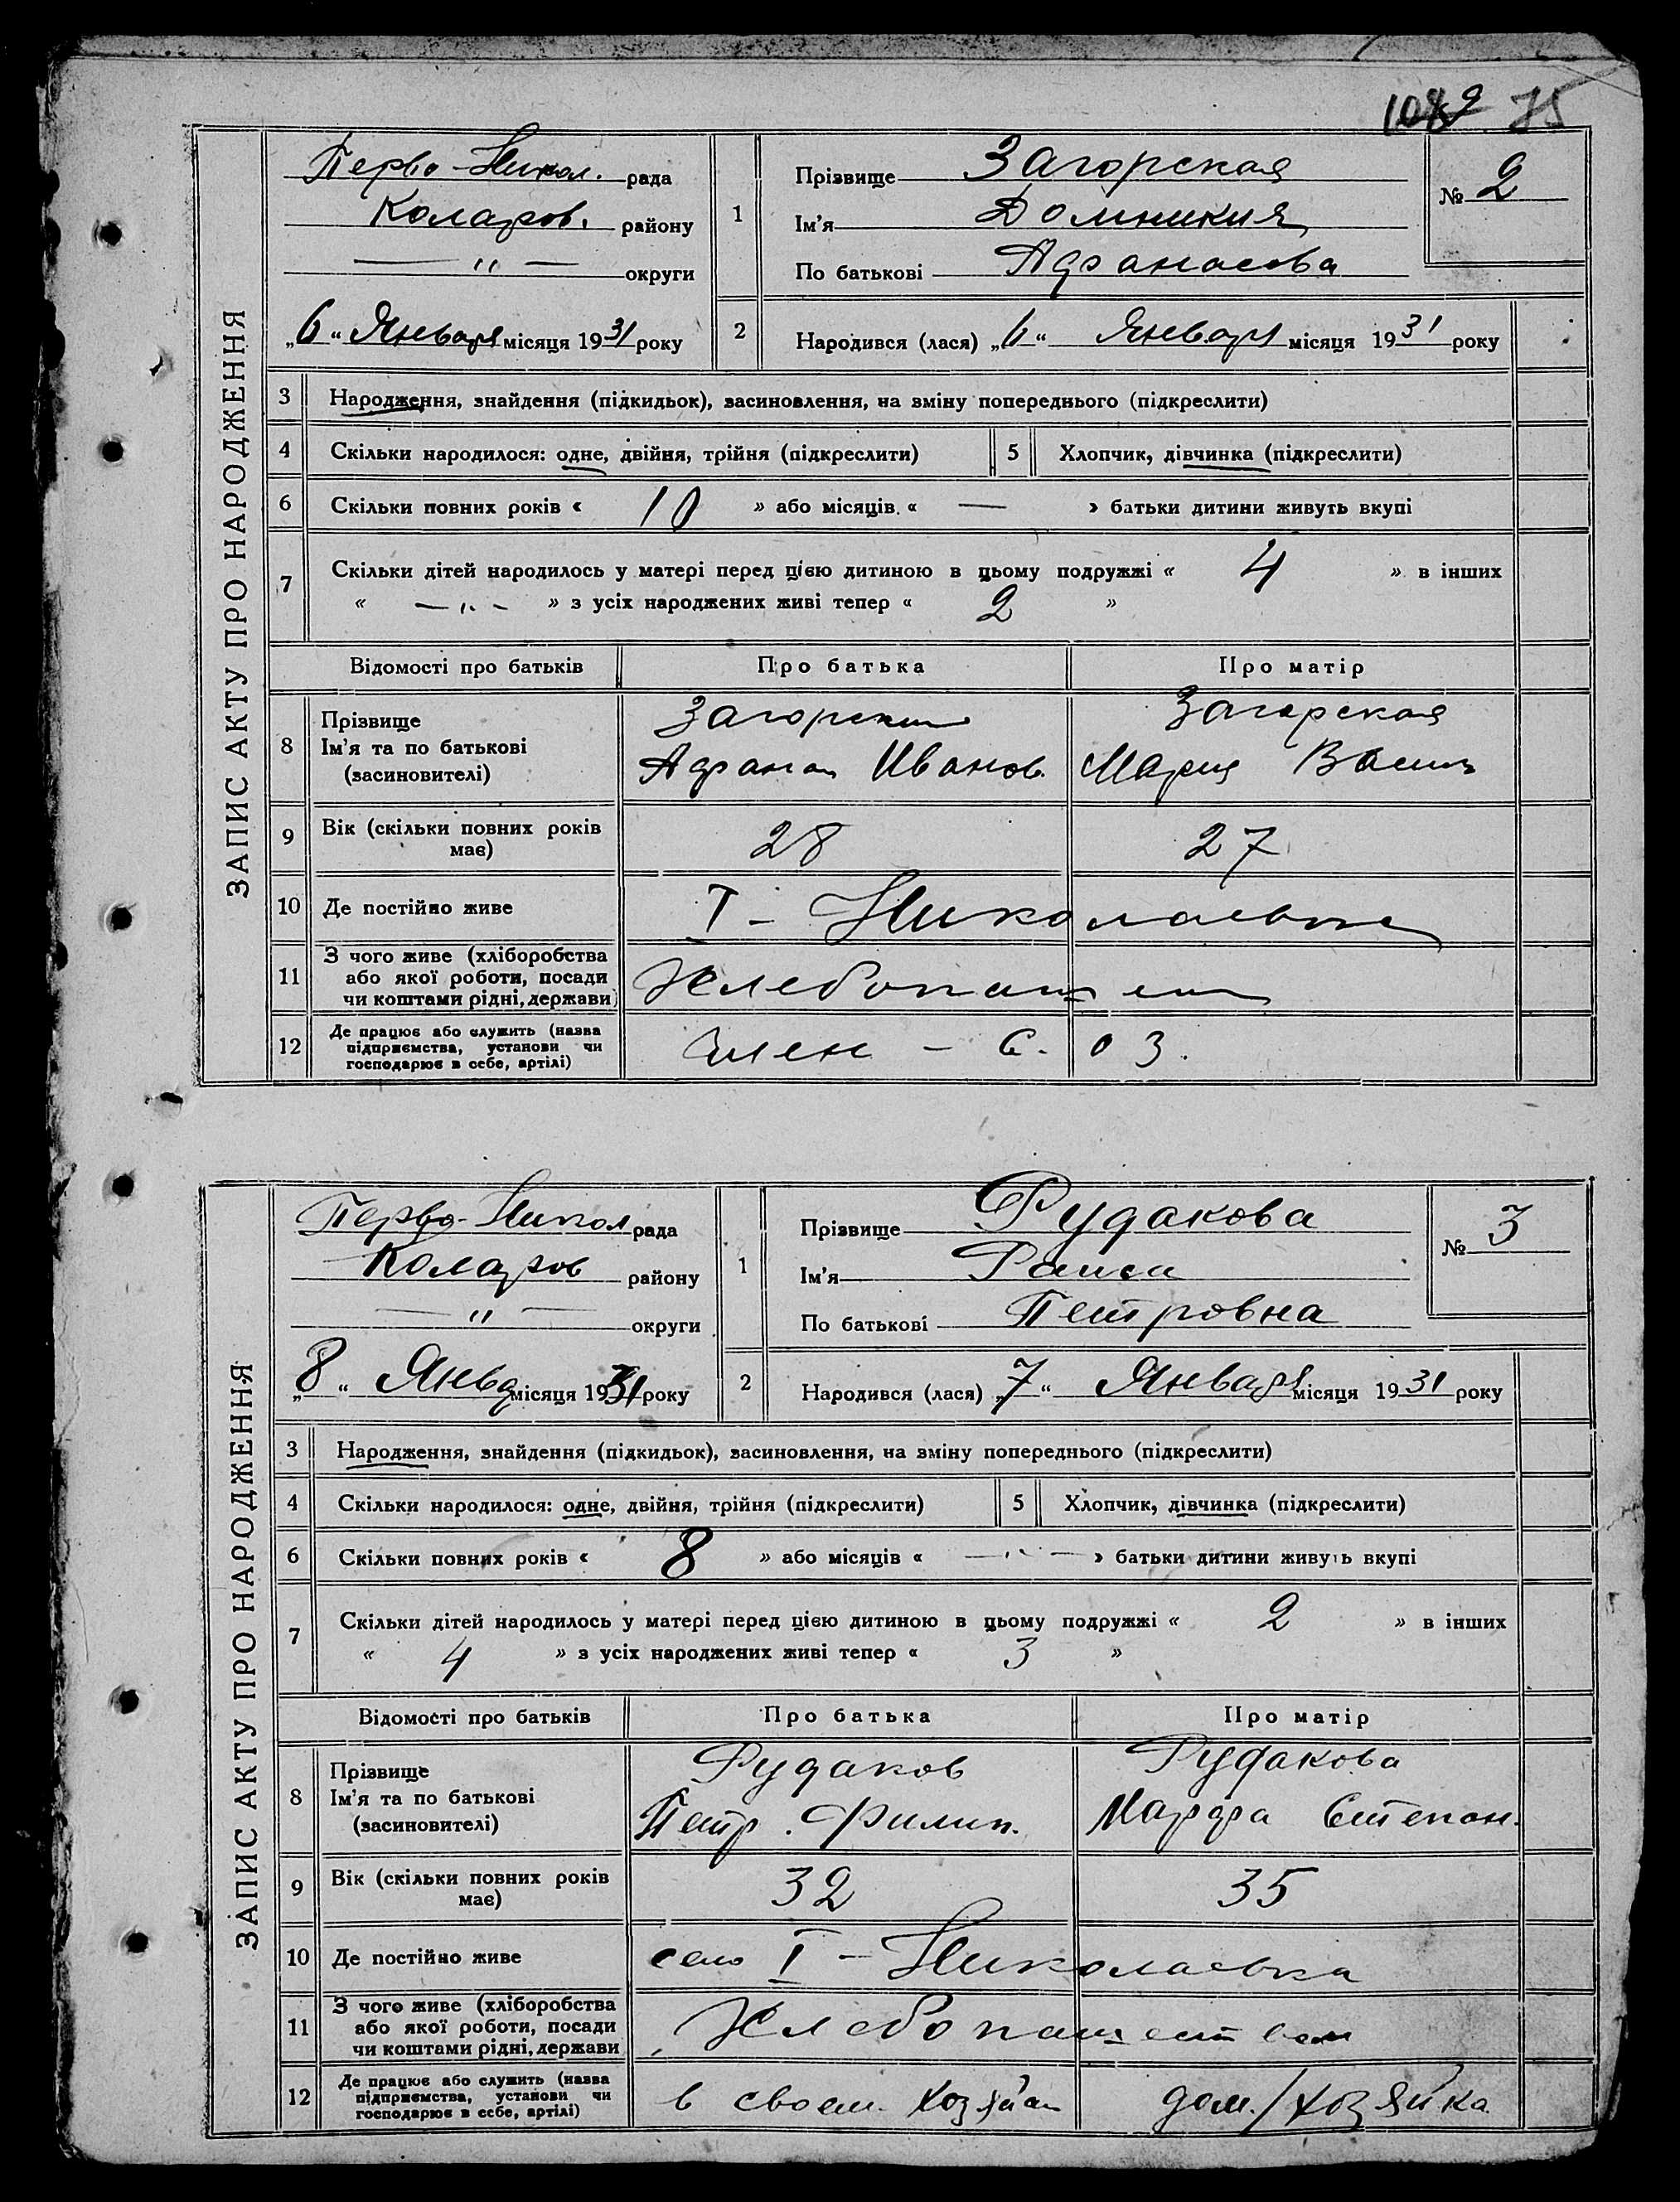 1089 75
ЗАПИС АКТУ ПРО НАРОДЖЕННЯ
Перво-Никол. рада
Коларов. району
— " — округи
„6“ Января місяця 1931 року
1
Прізвище Загорская
Ім'я Домникия
По батькові Афанасова
№ 2
2 Народився (лася) „6“ Января місяця 1931 року
3 Народження, знайдення (підкидьок), засиновлення, на зміну попереднього (підкреслити)
4 Скільки народилося: одне, двійня, трійня (підкреслити) 5 Хлопчик, дівчинка (підкреслити)
6 Скільки повних років « 10 » або місяців « — » батьки дитини живуть вкупі
7 Скільки дітей народилось у матері перед цією дитиною в цьому подружжі « 4 » в інших
« — " — » з усіх народжених живі тепер « 2 »
Відомості про батьків Про батька Про матір
8 Прізвище
Ім'я та по батькові
(засиновителі)
Загорский
Афанас Иванов.
Загорская
Мария Васил
9 Вік (скільки повних років має) 28 27
10 Де постійно живе I - Николаевка
11 З чого живе (хліборобства
або якої роботи, посади
чи коштами рідні, держави)
Хлебопашест
12 Де працює або служить (назва
підприємства, установи чи
господарює в себе, артілі)
Член - С. О З.
ЗАПИС АКТУ ПРО НАРОДЖЕННЯ
Перво-Никол рада
Коларов району
— " — округи
„8“ Январ місяця 1931 року
1
Прізвище Рудакова
Ім'я Раиса
По батькові Петровна
№ 3
2 Народився (лася) „7“ Января місяця 1931 року
3 Народження, знайдення (підкидьок), засиновлення, на зміну попереднього (підкреслити)
4 Скільки народилося: одне, двійня, трійня (підкреслити) 5 Хлопчик, дівчинка (підкреслити)
6 Скільки повних років « 8 » або місяців « — " — » батьки дитини живуть вкупі
7 Скільки дітей народилось у матері перед цією дитиною в цьому подружжі « 2 » в інших
« 4 » з усіх народжених живі тепер « 3 »
Відомості про батьків Про батька Про матір
8 Прізвище
Ім'я та по батькові
(засиновителі)
Рудаков
Петр. Филип.
Рудакова
Марфа Степан.
9 Вік (скільки повних років має) 32 35
10 Де постійно живе село I - Николаевка
11 З чого живе (хліборобства
або якої роботи, посади
чи коштами рідні, держави
Хлебопашеством
12 Де працює або служить (назва
підприємства, установи чи
господарює в себе, артілі)
в своем. хозяй
дом./хозяйка.